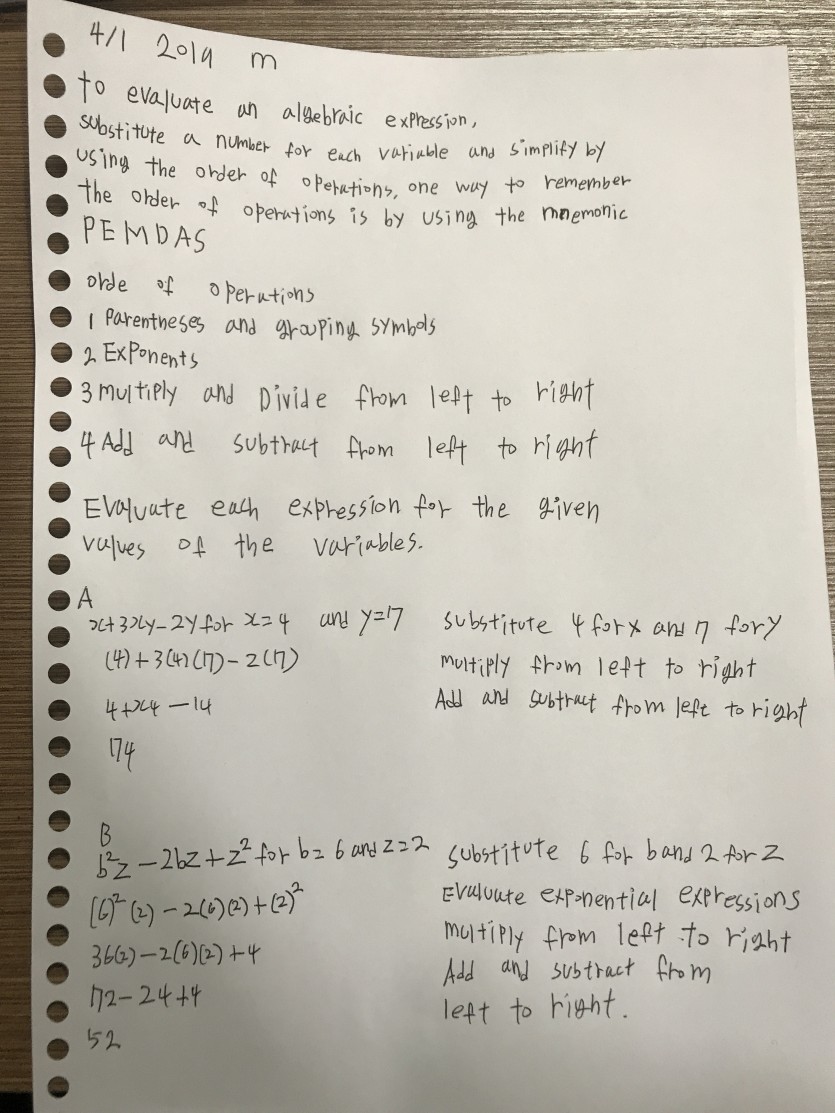 4/1 2019 m
to evaluate an algebraic expression,
substitute a number for each variable and simplify by
using the order of operations, one way to remember
the order of operations is by using the mnemonic
PEMDAS
orde of operations
1 Parentheses and grouping symbols
2 Exponents
3 multiply and Divide from left to right
4 Add and subtract from left to right
Evaluate each expression for the given
values of the variables.
A
x+3xy-2y for x=4 and y=7 substitute 4 for x and 7 for y
(4)+3(4)(7)-2(7) multiply from left to right
4+x4-14 Add and subtract from left to right
74
B
b²z-2bz+z² for b=6 and z=2 substitute 6 for b and 2 for z
(6)²(2)-2(6)(2)+(2)² Evaluate exponential expressions
36(2)-2(6)(2)+4 multiply from left to right
72-24+4 Add and subtract from
52 left to right.